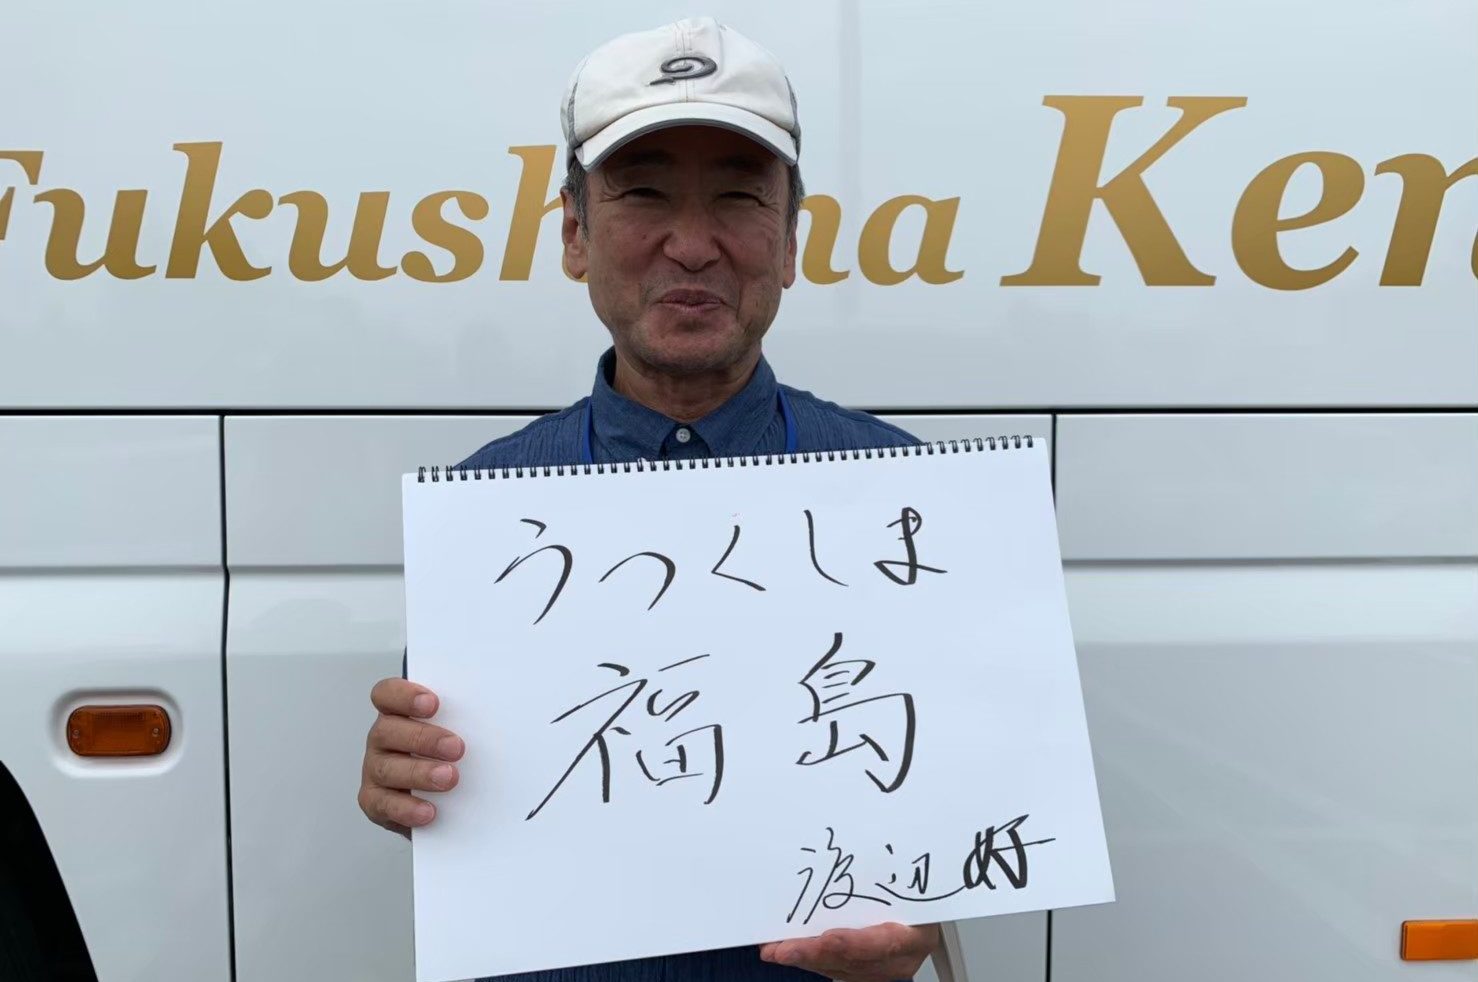 Fukushima Ken
うつくしま
福島
渡辺 好